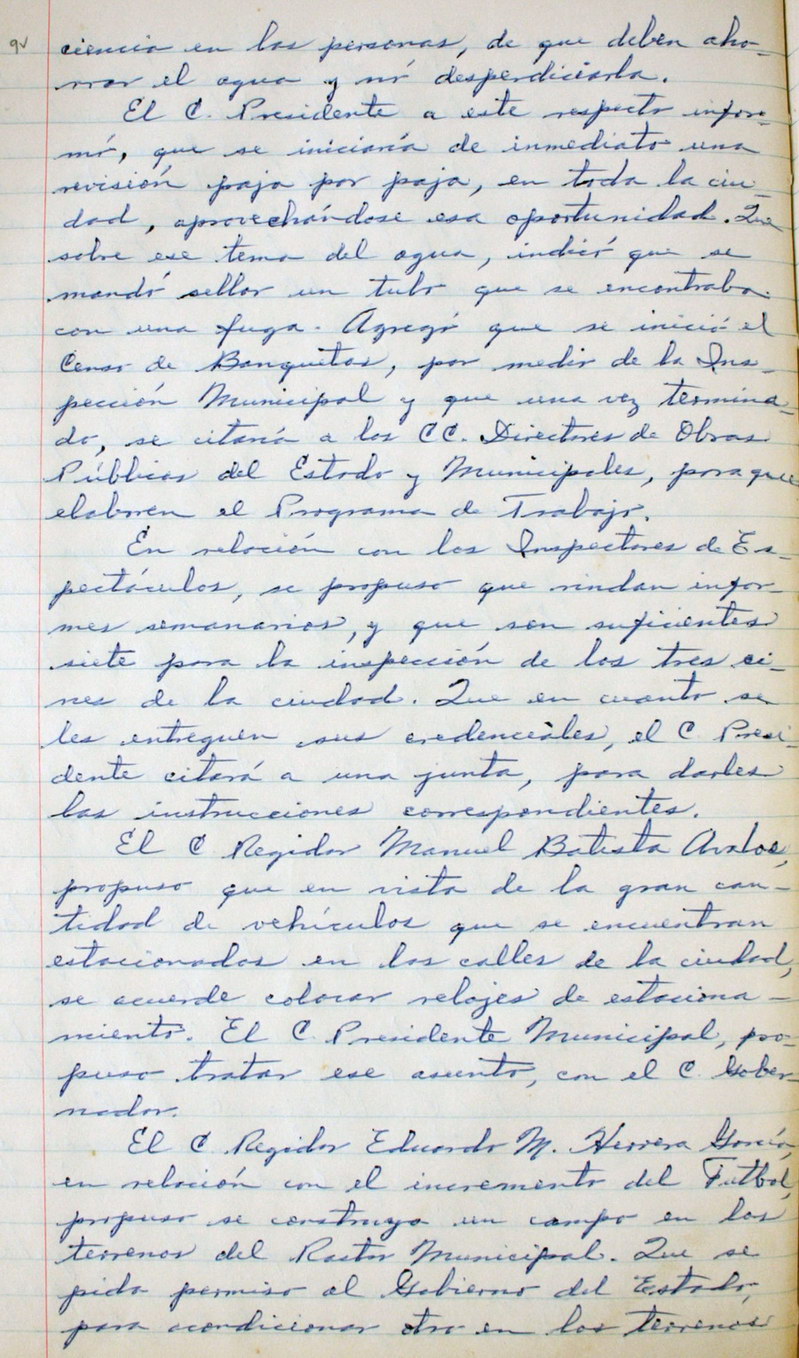 9v
ciencia en las personas, de que deben aho-
rrar el agua y nó desperdiciarla.
El C. Presidente a este respecto infor-
mó, que se iniciaría de inmediato una
revisión paja por paja, en toda la ciu-
dad, aprovechándose esa oportunidad. Que
sobre ese tema del agua, indicó que se
mandó sellar un tubo que se encontraba
con una fuga. Agregó que se inició el
Censo de Banquetas, por medio de la Ins-
pección Municipal y que una vez termina-
do, se citaría a los CC. Directores de Obras
Públicas del Estado y Municipales, para que
elaboren el Programa de Trabajo.
En relación con los Inspectores de Es-
pectáculos, se propuso que rindan infor-
mes semanarios, y que son suficientes
siete para la inspección de los tres ci-
nes de la ciudad. Que en cuanto se
les entreguen sus credenciales, el C Presi-
dente citará a una junta, para darles
las instrucciones correspondientes.
El C Regidor Manuel Batista Avalos,
propuso que en vista de la gran can-
tidad de vehículos que se encuentran
estacionados en las calles de la ciudad,
se acuerde colocar relojes de estaciona-
miento. El C. Presidente Municipal, pro-
puso tratar ese asunto, con el C Gober-
nador.
El C Regidor Eduardo M. Herrera García,
en relación con el incremento del Futbol,
propuso se construya un campo en los
terrenos del Rastro Municipal. Que se
pida permiso al Gobierno del Estado,
para acondicionar otro en los terrenos